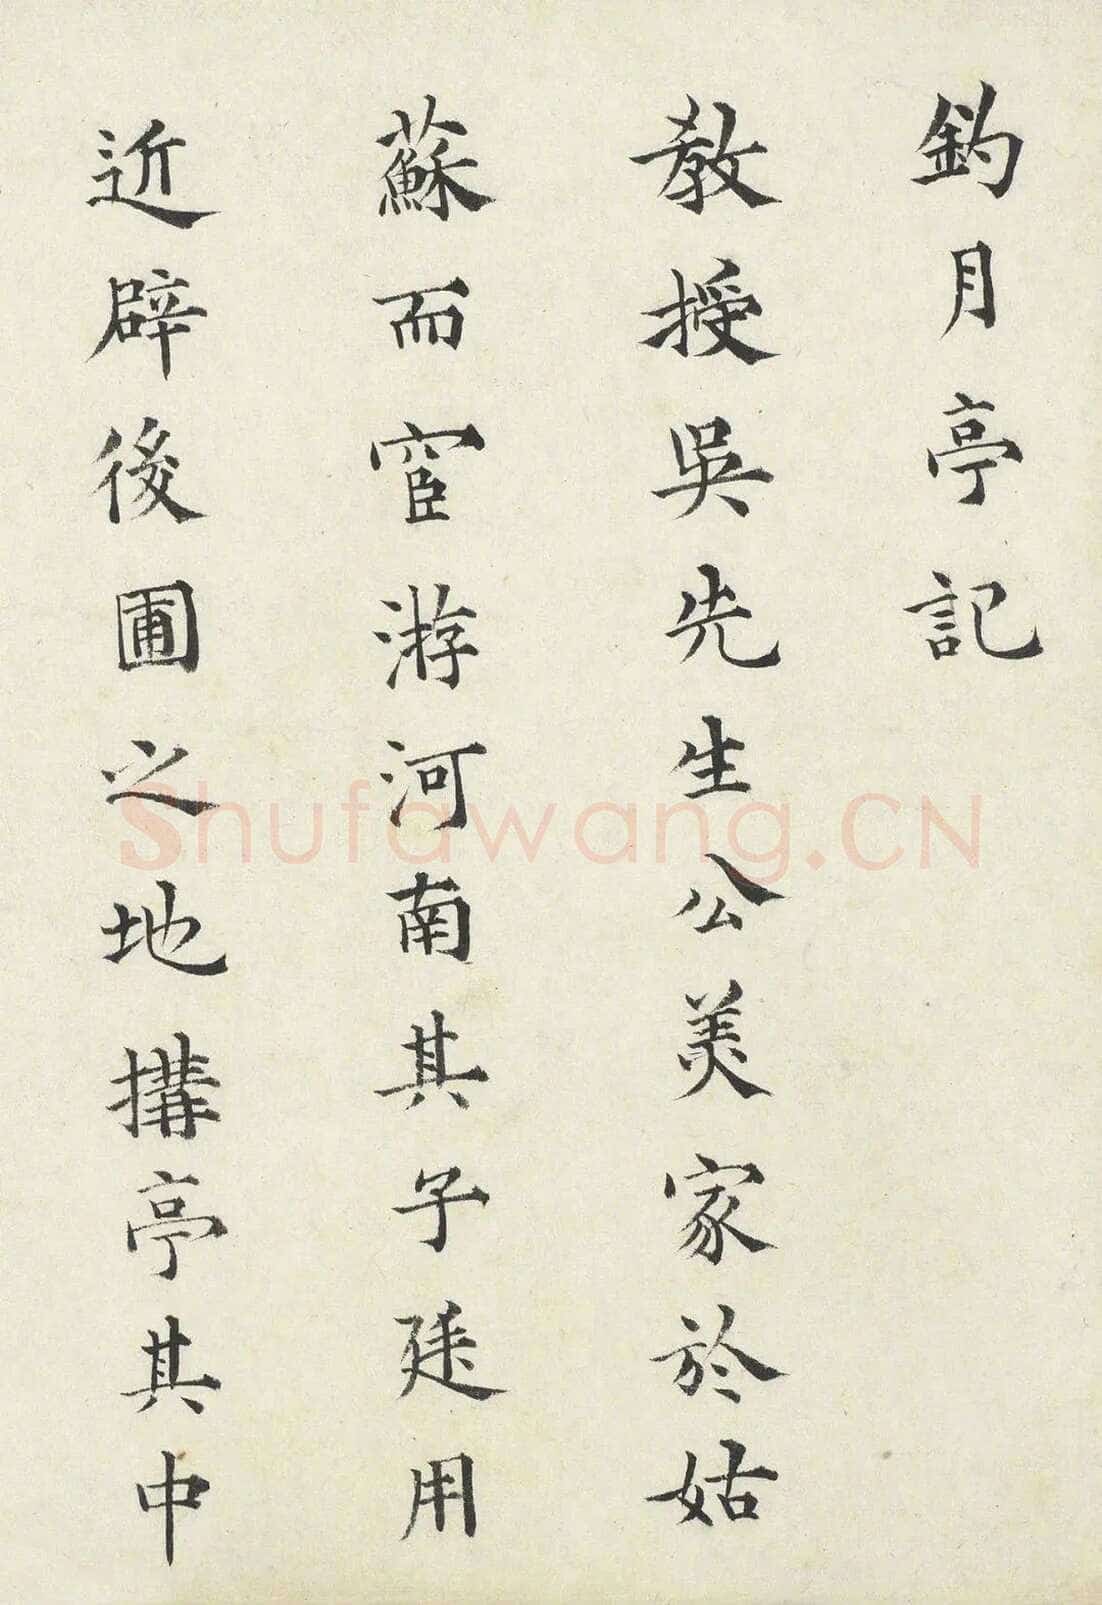 釣月亭記
教授吳先生公美家於姑
蘇而宦游河南其子廷用
近辟後圃之地搆亭其中
Shufawang.CN